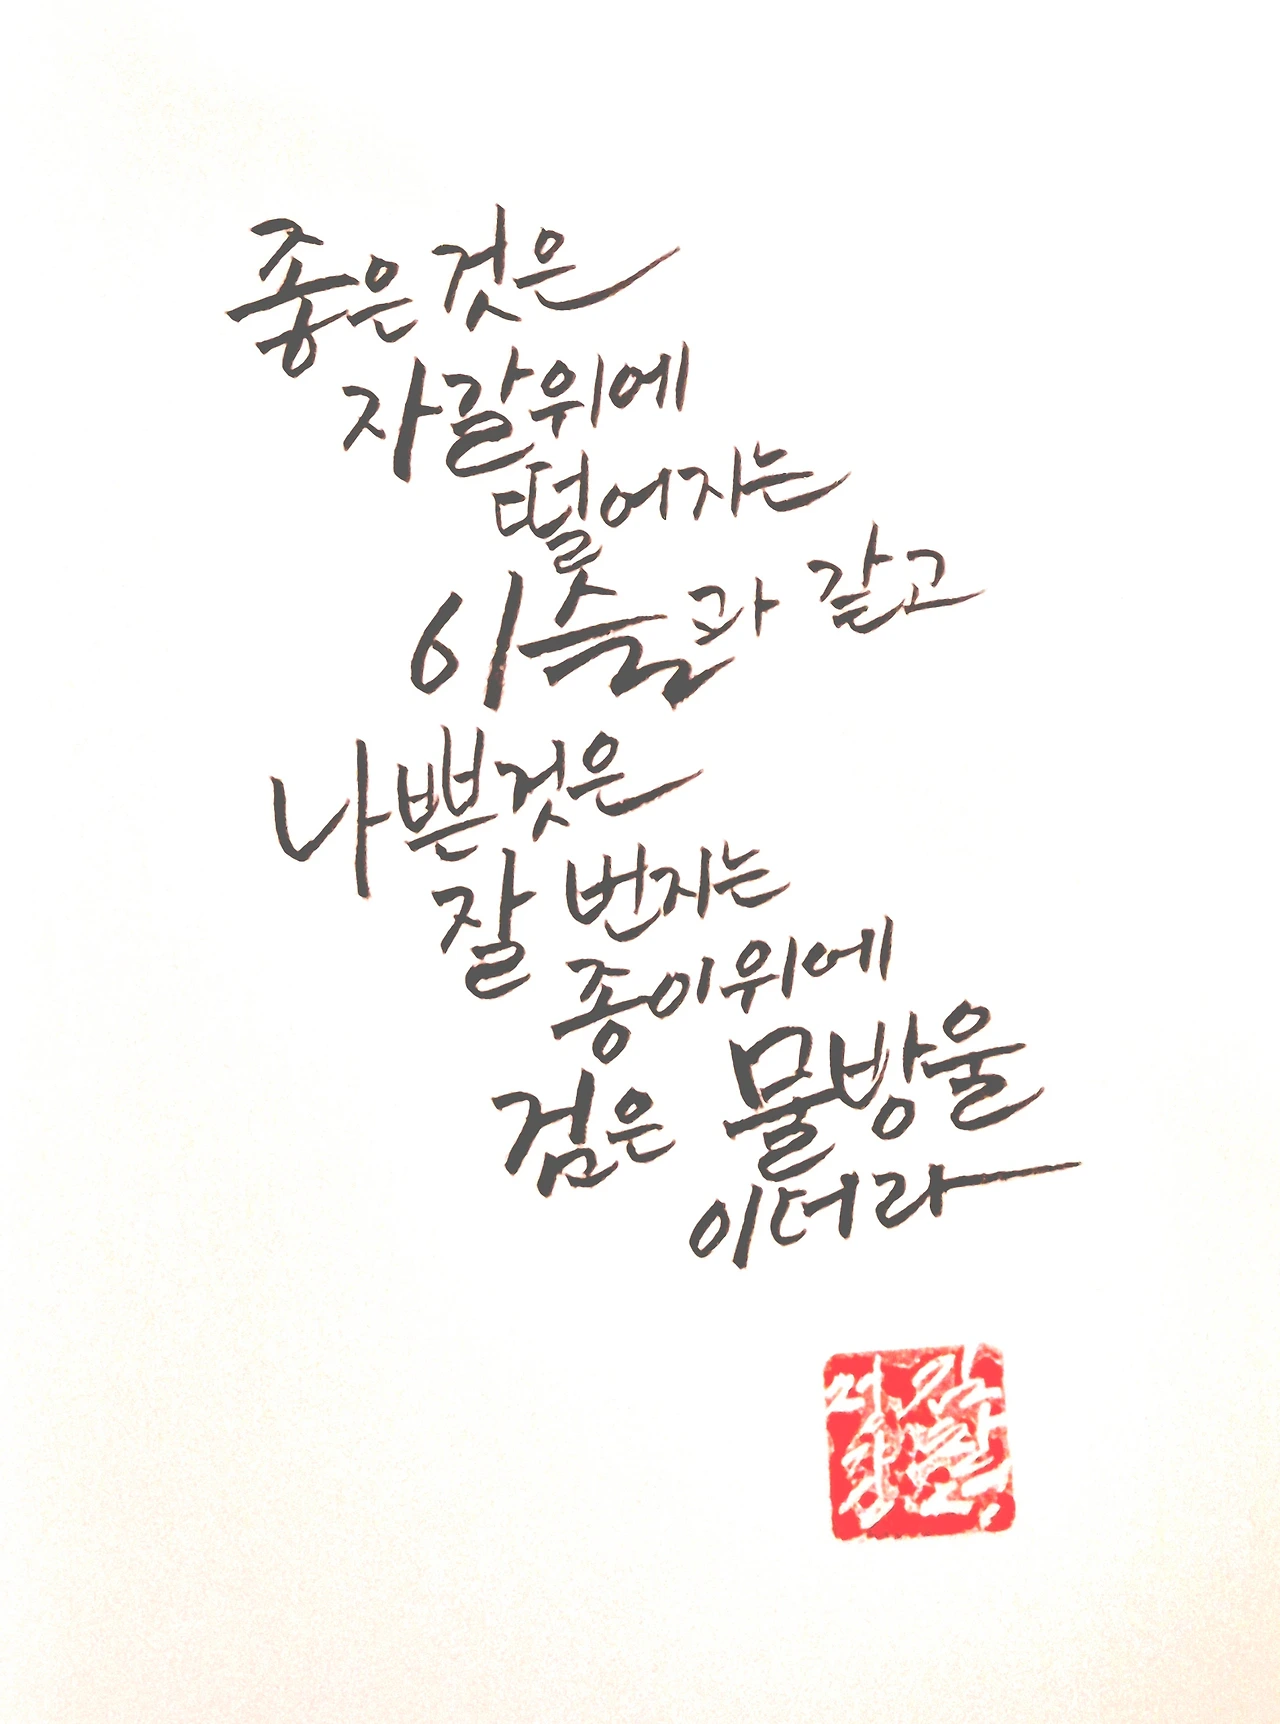 좋은 것은
자갈위에
떨어지는
이슬과 같고
나쁜것은
잘 번지는
종이위에
검은 물방울
이더라